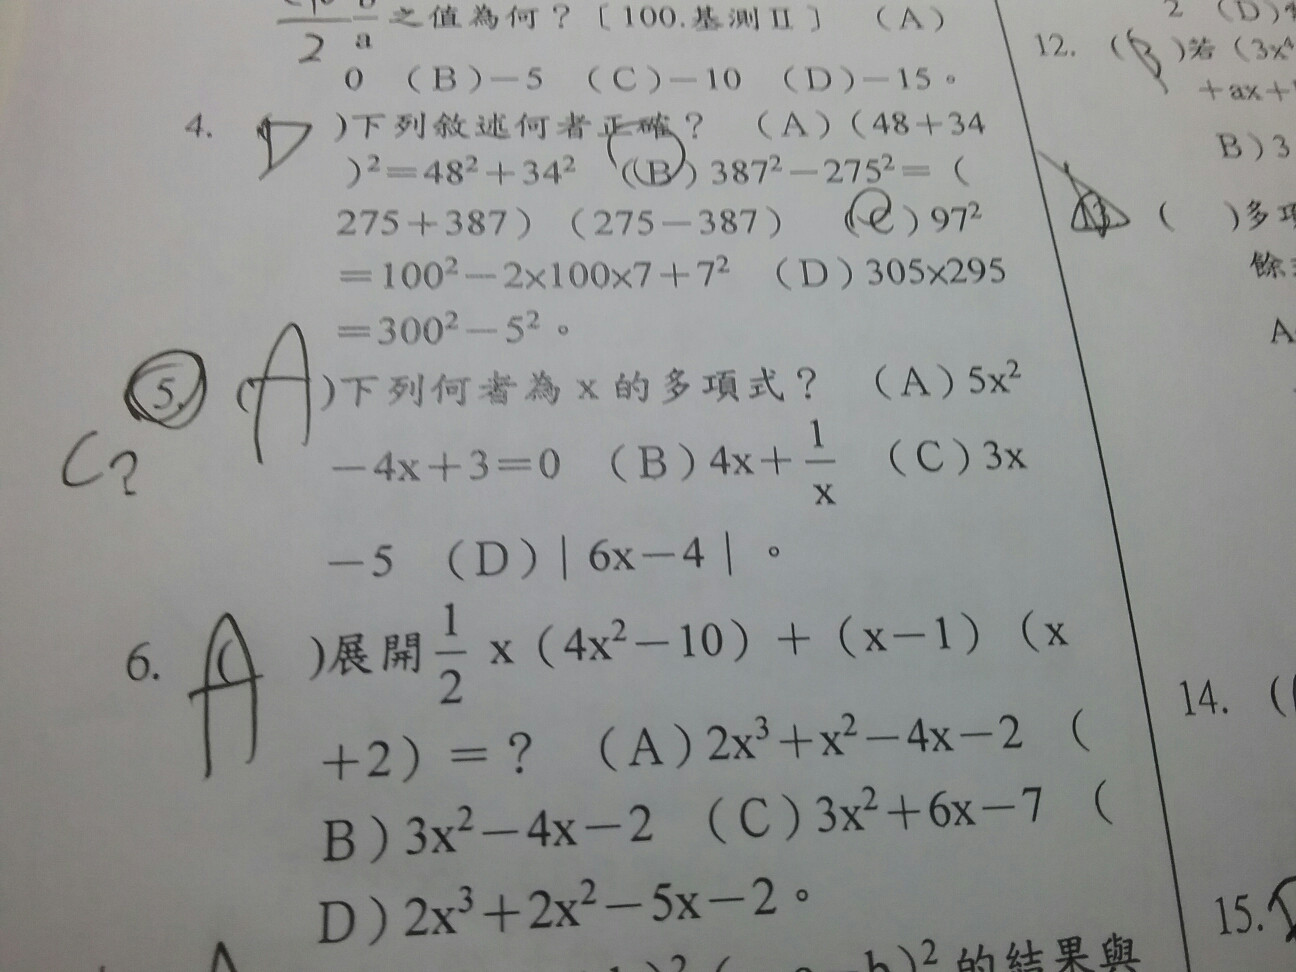 之值為何？〔100.基測Ⅱ〕 （A）
2 a
0 （B）－5 （C）－10 （D）－15。
4. D )下列敘述何者正確？ （A）（48＋34
）²＝48²＋34² （B）387²－275²＝（
275＋387）（275－387） （C）97²
＝100²－2x100x7＋7² （D）305x295
＝300²－5²。
5. ( A )下列何者為 x 的多項式？ （A）5x²
C?
－4x＋3＝0 （B）4x＋1/x （C）3x
－5 （D）| 6x－4 |。
6. ( A )展開 1/2 x（4x²－10）＋（x－1）（x
＋2）＝？ （A）2x³＋x²－4x－2 （
B）3x²－4x－2 （C）3x²＋6x－7 （
D）2x³＋2x²－5x－2。
)² 的結果與
2 （D）
12. ( B )若（3x⁴
＋ax＋
B）3
13 ( )多項
餘
A
14. (
15.